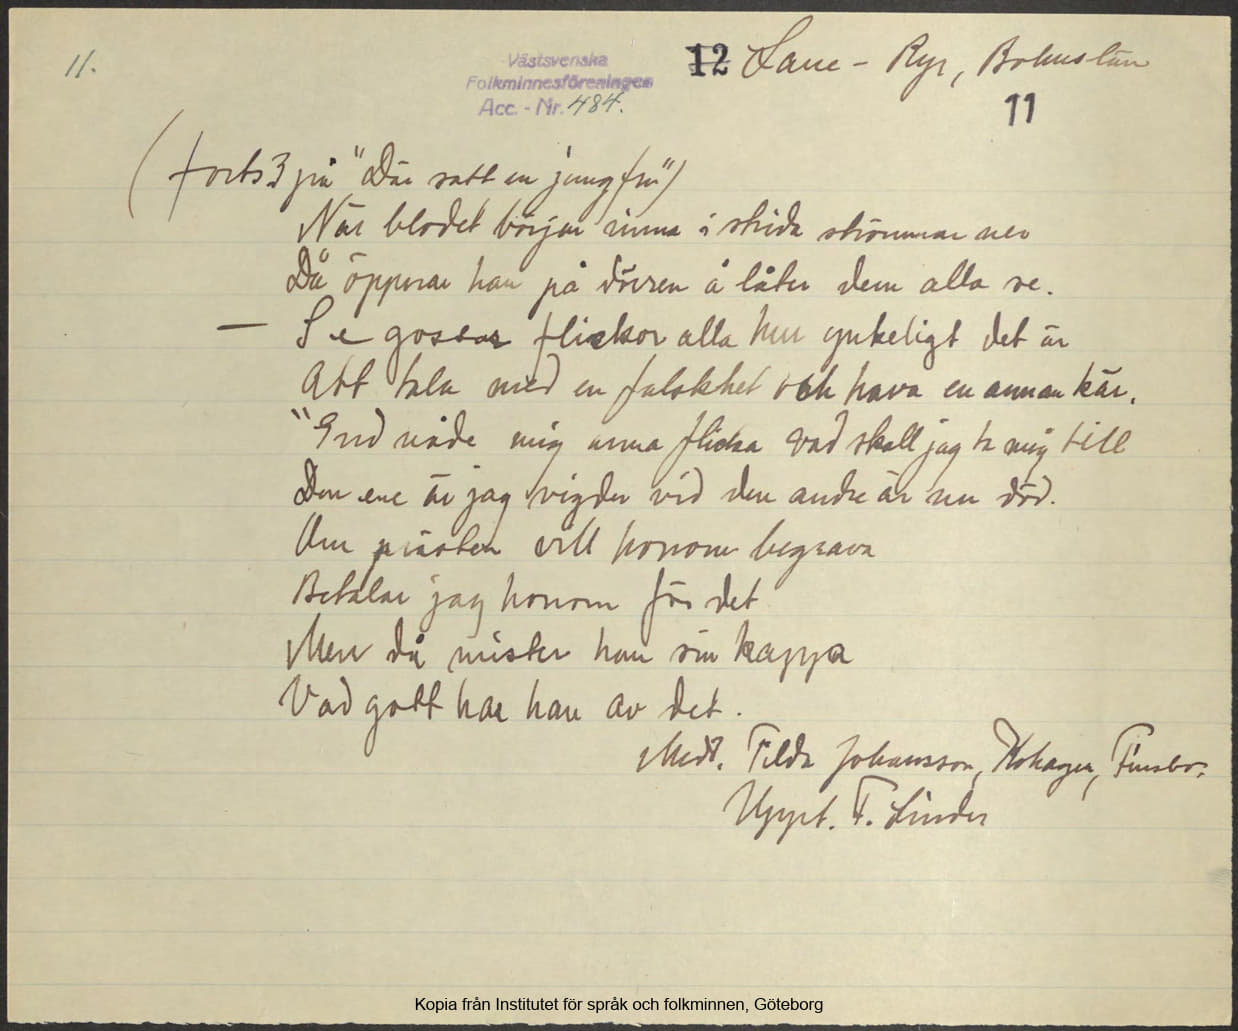 11.
Västsvenska
Folkminnesföreningen
Acc. - Nr. 484.
12 Lane - Ryr, Bohuslän
11
(forts 3 på "Där satt en jungfru")
När blodet börjar rinna i strida strömmar ner
Då öppnar han på dörren å låter dem alla se.
— Se gossar flickor alla hur ynkeligt det är
Att tala med en falskhet och hava en annan kär.
"Gud nåde mig arma flicka vad skall jag ta mig till
Den ene är jag vigder vid den andre är nu död.
Om prästen vill honom begrava
Betalar jag honom för det
Men då mister han sin kappa
Vad gott har han av det.
Medd. Tilda Johansson, Hohagen, Finsbo.
Uppt. F. Linder
Kopia från Institutet för språk och folkminnen, Göteborg